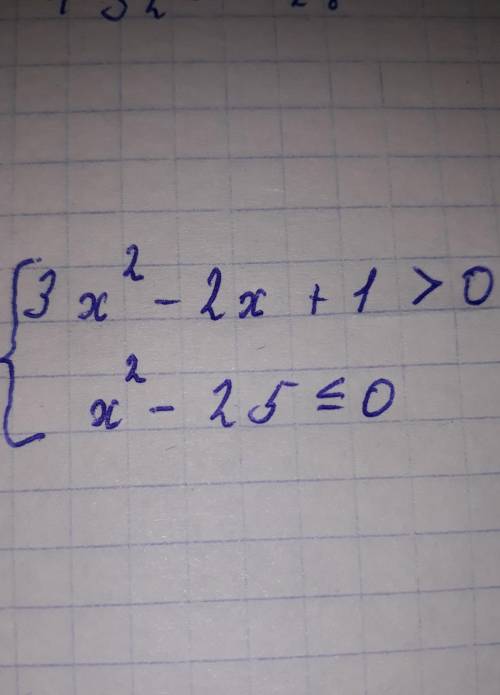 3x² - 2x + 1 > 0
x² - 25 ≤ 0